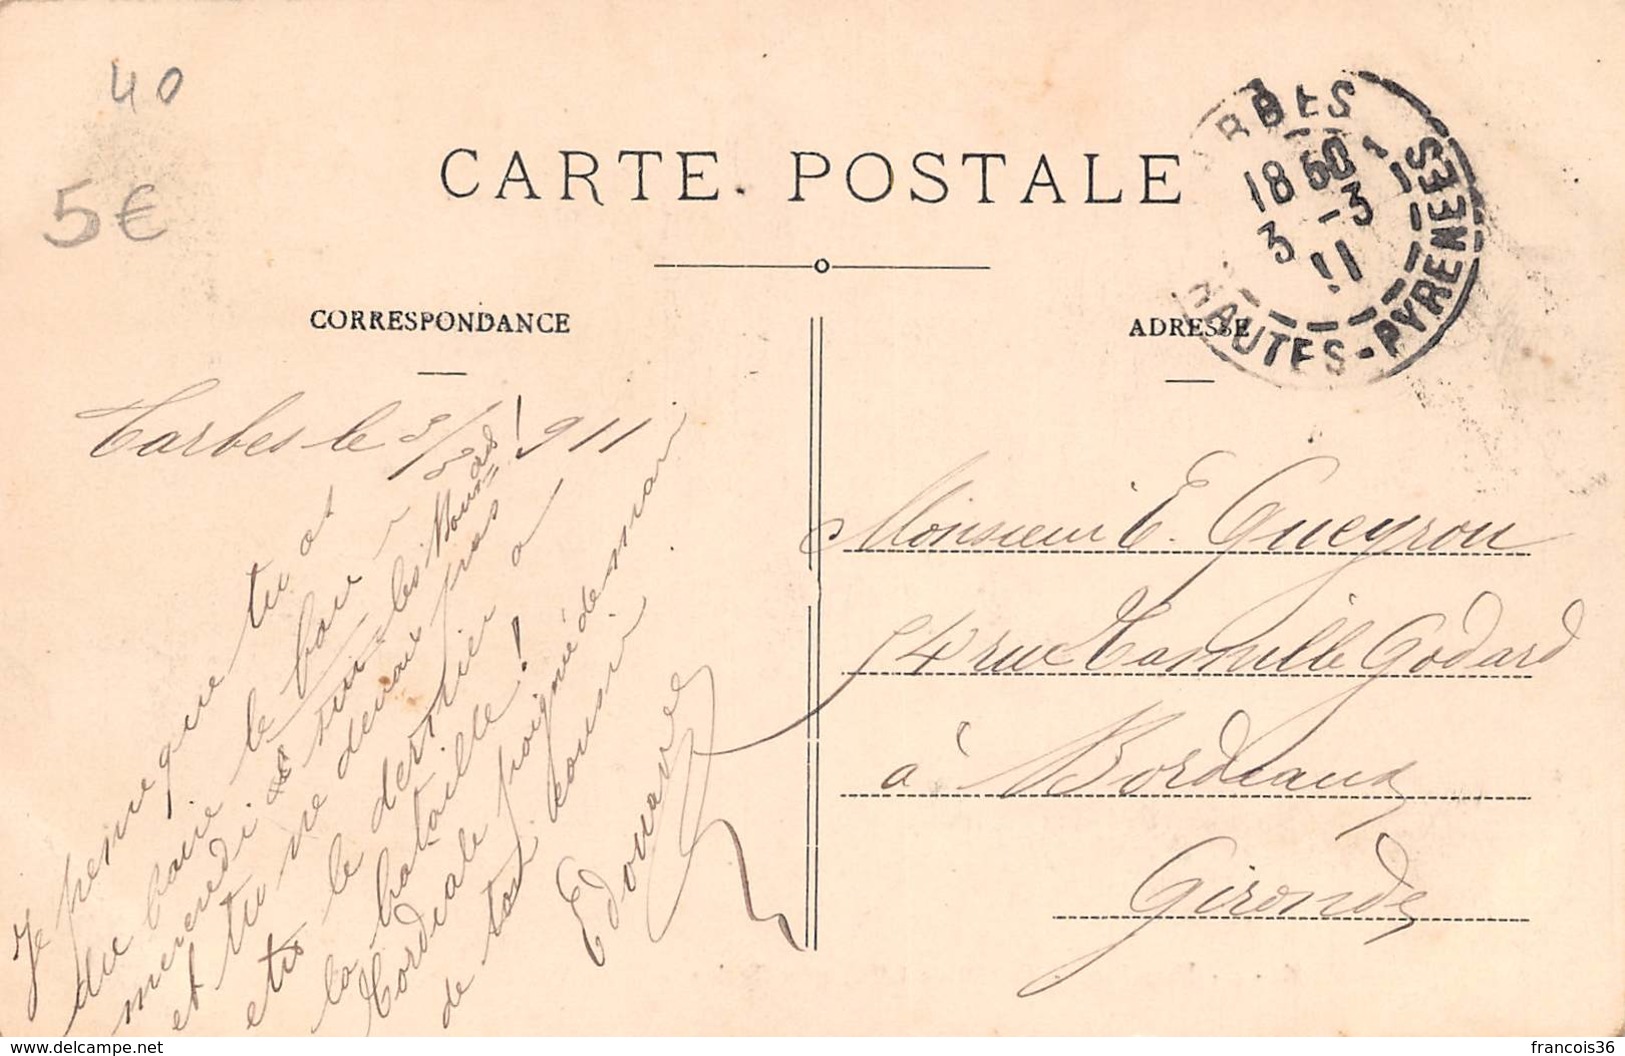 40
5€
CARTE POSTALE
TARBES
18 50
3 -3
11
HAUTES-PYRENEES
CORRESPONDANCE
ADRESSE
Tarbes le 3/3/911
Je pense que tu as
du boire le bon
mercredi sur les
et tu ne devais pas
etre le dernier a
la bataille!
Cordiale poignée de main
de ton cousin
Edouard
Monsieur E. Gueyrou
54 rue Camille Godard
à Bordeaux
Gironde
www.delcampe.net
francois36